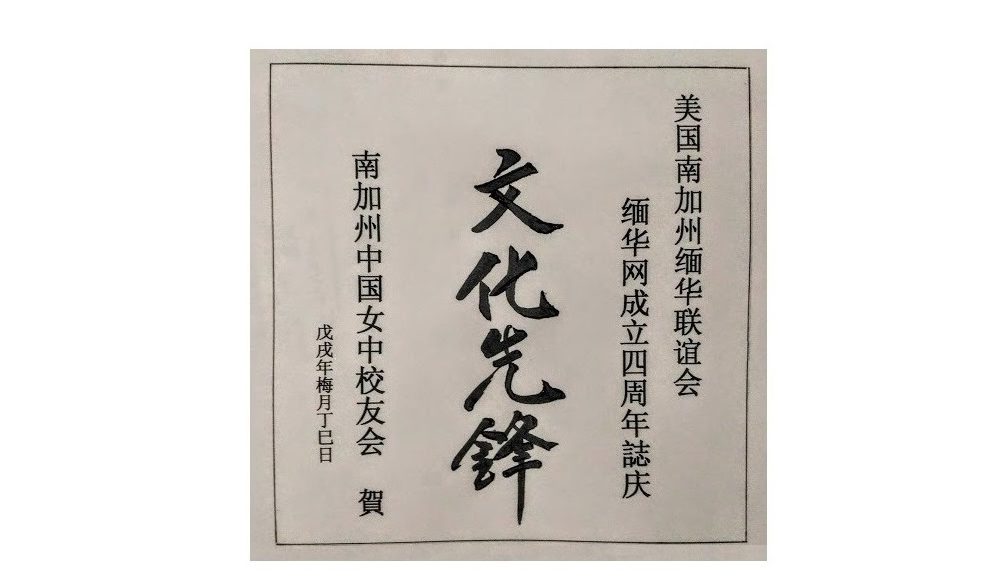 美国南加州缅华联谊会
缅华网成立四周年誌庆
文化先锋
南加州中国女中校友会 賀
戊戌年梅月丁巳日